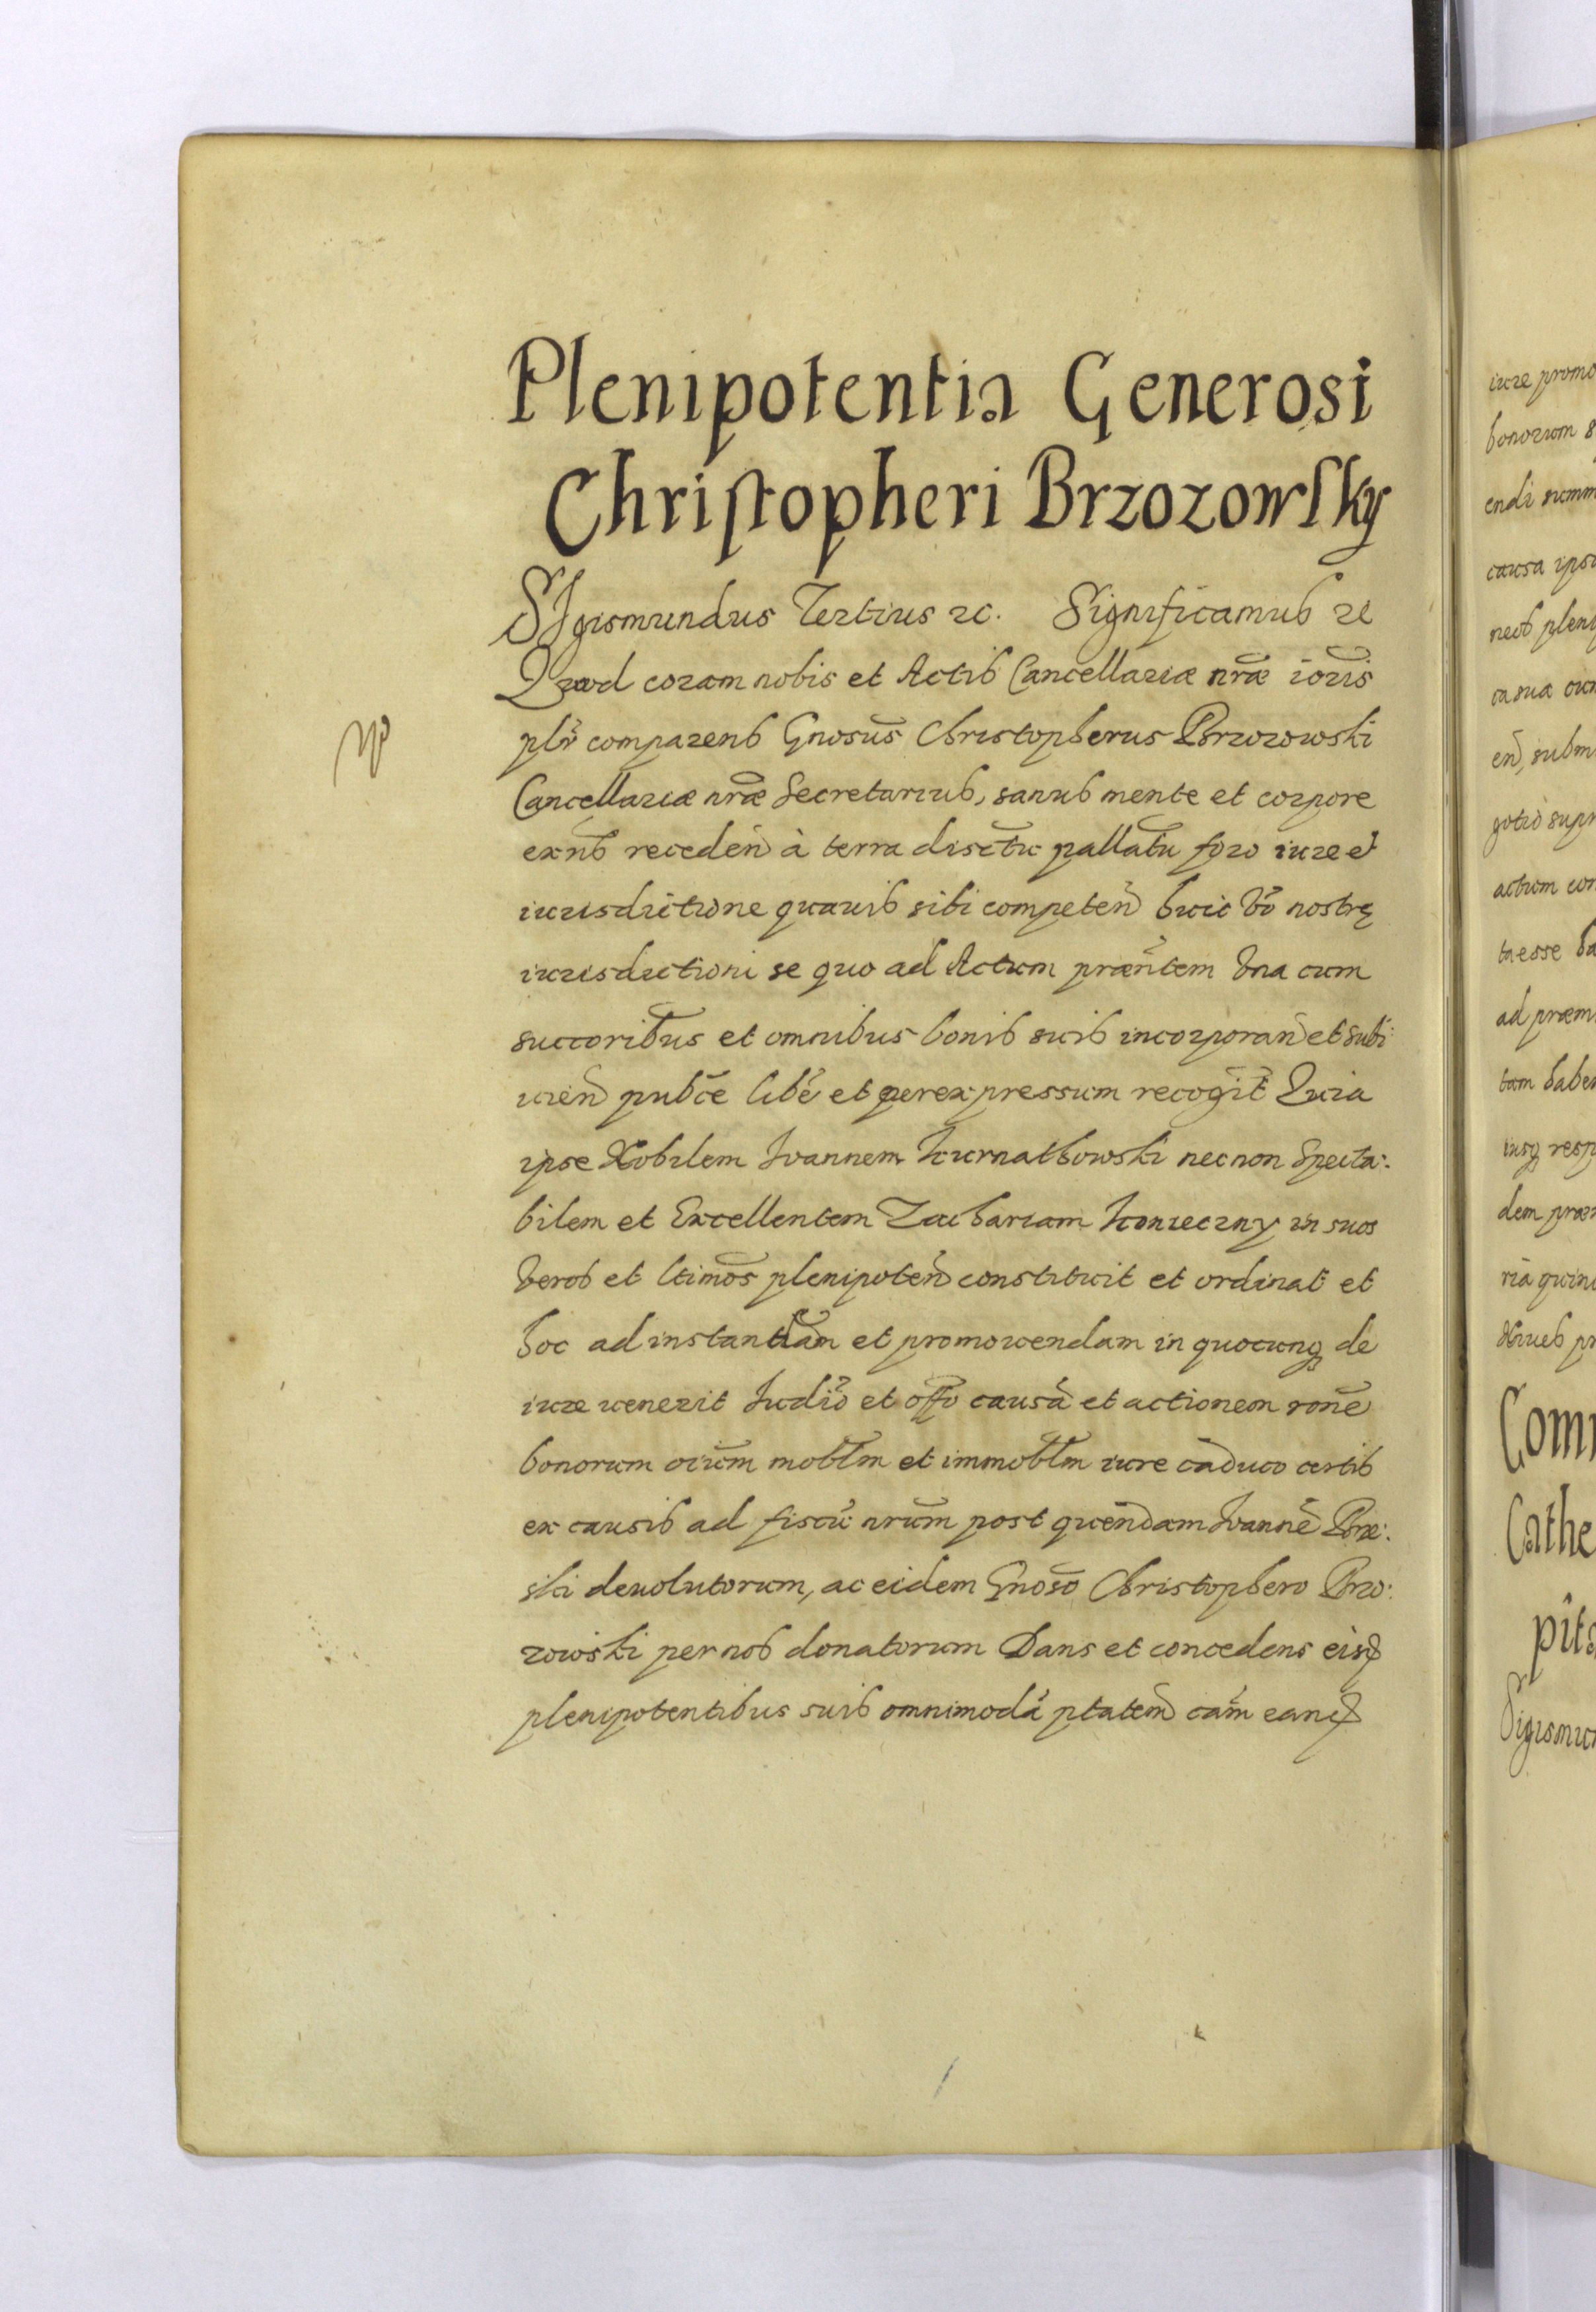 Plenipotentia Generosi
Christopheri Brzozowsky
SIgismundus Tertius zc. Significamus zc
Quod coram nobis et Actis Cancellariæ nr̃æ
plr̃ comparens Gnosus̃ Christopherus Brzozowski
Cancellariæ nr̃æ Secretarius, sanus mente et corpore
exñs recedeñ à terra foro iure et
iurisdictione quauis sibi competeñ huic võ nostrę
iurisdictioni se quo ad Actum præñtem vna cum
succoribũs et omnibus bonis suis incorporañ et subi:
icieñ pubc̃e libẽ et per expressum recogĩt Quia
ipse Nobilem Ioannem Kurnathowski necnon Specta:
bilem et Excellentem Zachariam Konieczny in suos
veros et ltimõs plenipoteñ constituit et ordinat et
hoc ad instantiam et promouendam in quocunq de
iure uenerit Iudiõ et offõ causã et actionem ronẽ
bonorum oiũm mobl̃m et immobl̃m iure caduco certis
ex causis ad fiscũ nrũm post quendam Ioannẽ
ski deuolutorum, ac eidem Gnosõ Christophero Brzo:
zowski per nos donatorum Dans et concedens eisd
plenipotentibus suis omnimodã ptateñ cam̃ eand
iure promo
bonorum s
endi summ
causa ipsi
neos pleni
ca sua cum
eñ, subm
gotiõ supr
actum con
ta esse ha
ad præm
tam haber
iusq resp
dem præ
ria quin
Comm
Cathe
pit
Sigismun